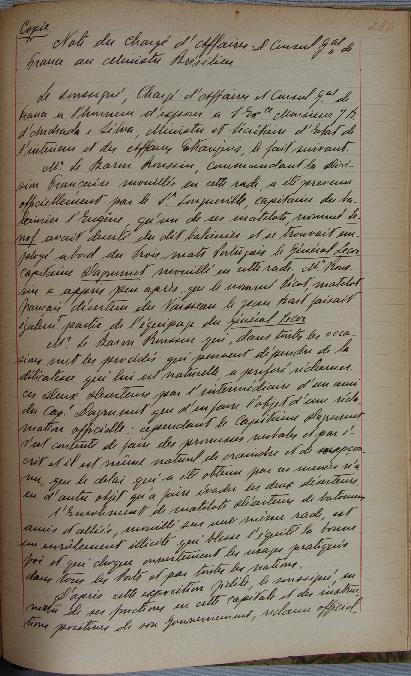 Copie
280
Note du Chargé d'Affaires et Consul Gal de
France au Ministre Brésilien
Le soussigné, Chargé d'Affaires et Consul Gal de
France a l'honneur d'exposer à S. Exce Monsieur J. B.
d'Andrada e Silva, Ministre et Secrétaire d'Etat de
l'intérieur et des Affaires Etrangères, le fait suivant.
Mr. le Baron Roussin, commandant la divi-
sion française mouillée en cette rade, a été prévenu
officiellement par le Sr. capitaine du ba-
leinier l'Eugène, qu'un de ses matelots, nommé
avait déserté du dit baleinier et se trouvait em-
ployé à bord du trois-mats Portugais le Général Lecor
capitaine mouillé en cette rade. Mr. Rous-
sin a appris peu après que le nommé matelot
français déserteur du Vaisseau le Jean Bart faisait
partie de l'équipage du Général Lecor
Mr. le Baron Roussin qui, dans toutes les occa-
sions met les procédés qui peuvent dépendre de la
délicatesse qui lui est naturelle a préféré réclamer
ces deux déserteurs par l'intermédiaire d'un ami
du Cap. que d'en faire l'objet d'une récla-
mation officielle: cependant le Capitaine
s'est contenté de faire des promesses verbales et par é-
crit et il est même naturel de craindre et de
que le délai qui a été obtenu par ces menées n'a
eu d'autre objet que de faire évader les deux déserteurs
L'enrolement de matelots déserteurs de batiments
amis et alliés, mouillés sur une même rade, est
un enrôlement illicite qui blesse l'équité la bonne
foi et qui choque ouvertement les usages pratiqués
dans tous les Ports et par toutes les nations.
D'après cette exposition fidèle, le soussigné, en
vertu de ses fonctions en cette capitale et des instruc-
tions positives de son Gouvernement, réclame officiel